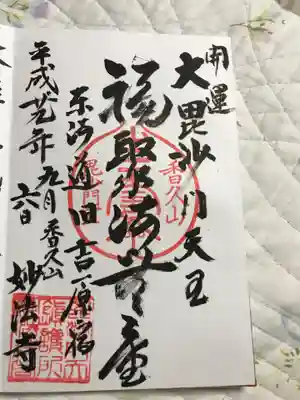 開運
大毘沙門天王
福聚海無量
東海道旧吉原宿
香久山
妙法寺
平成廿九年九月
六日
香久山
毘沙門